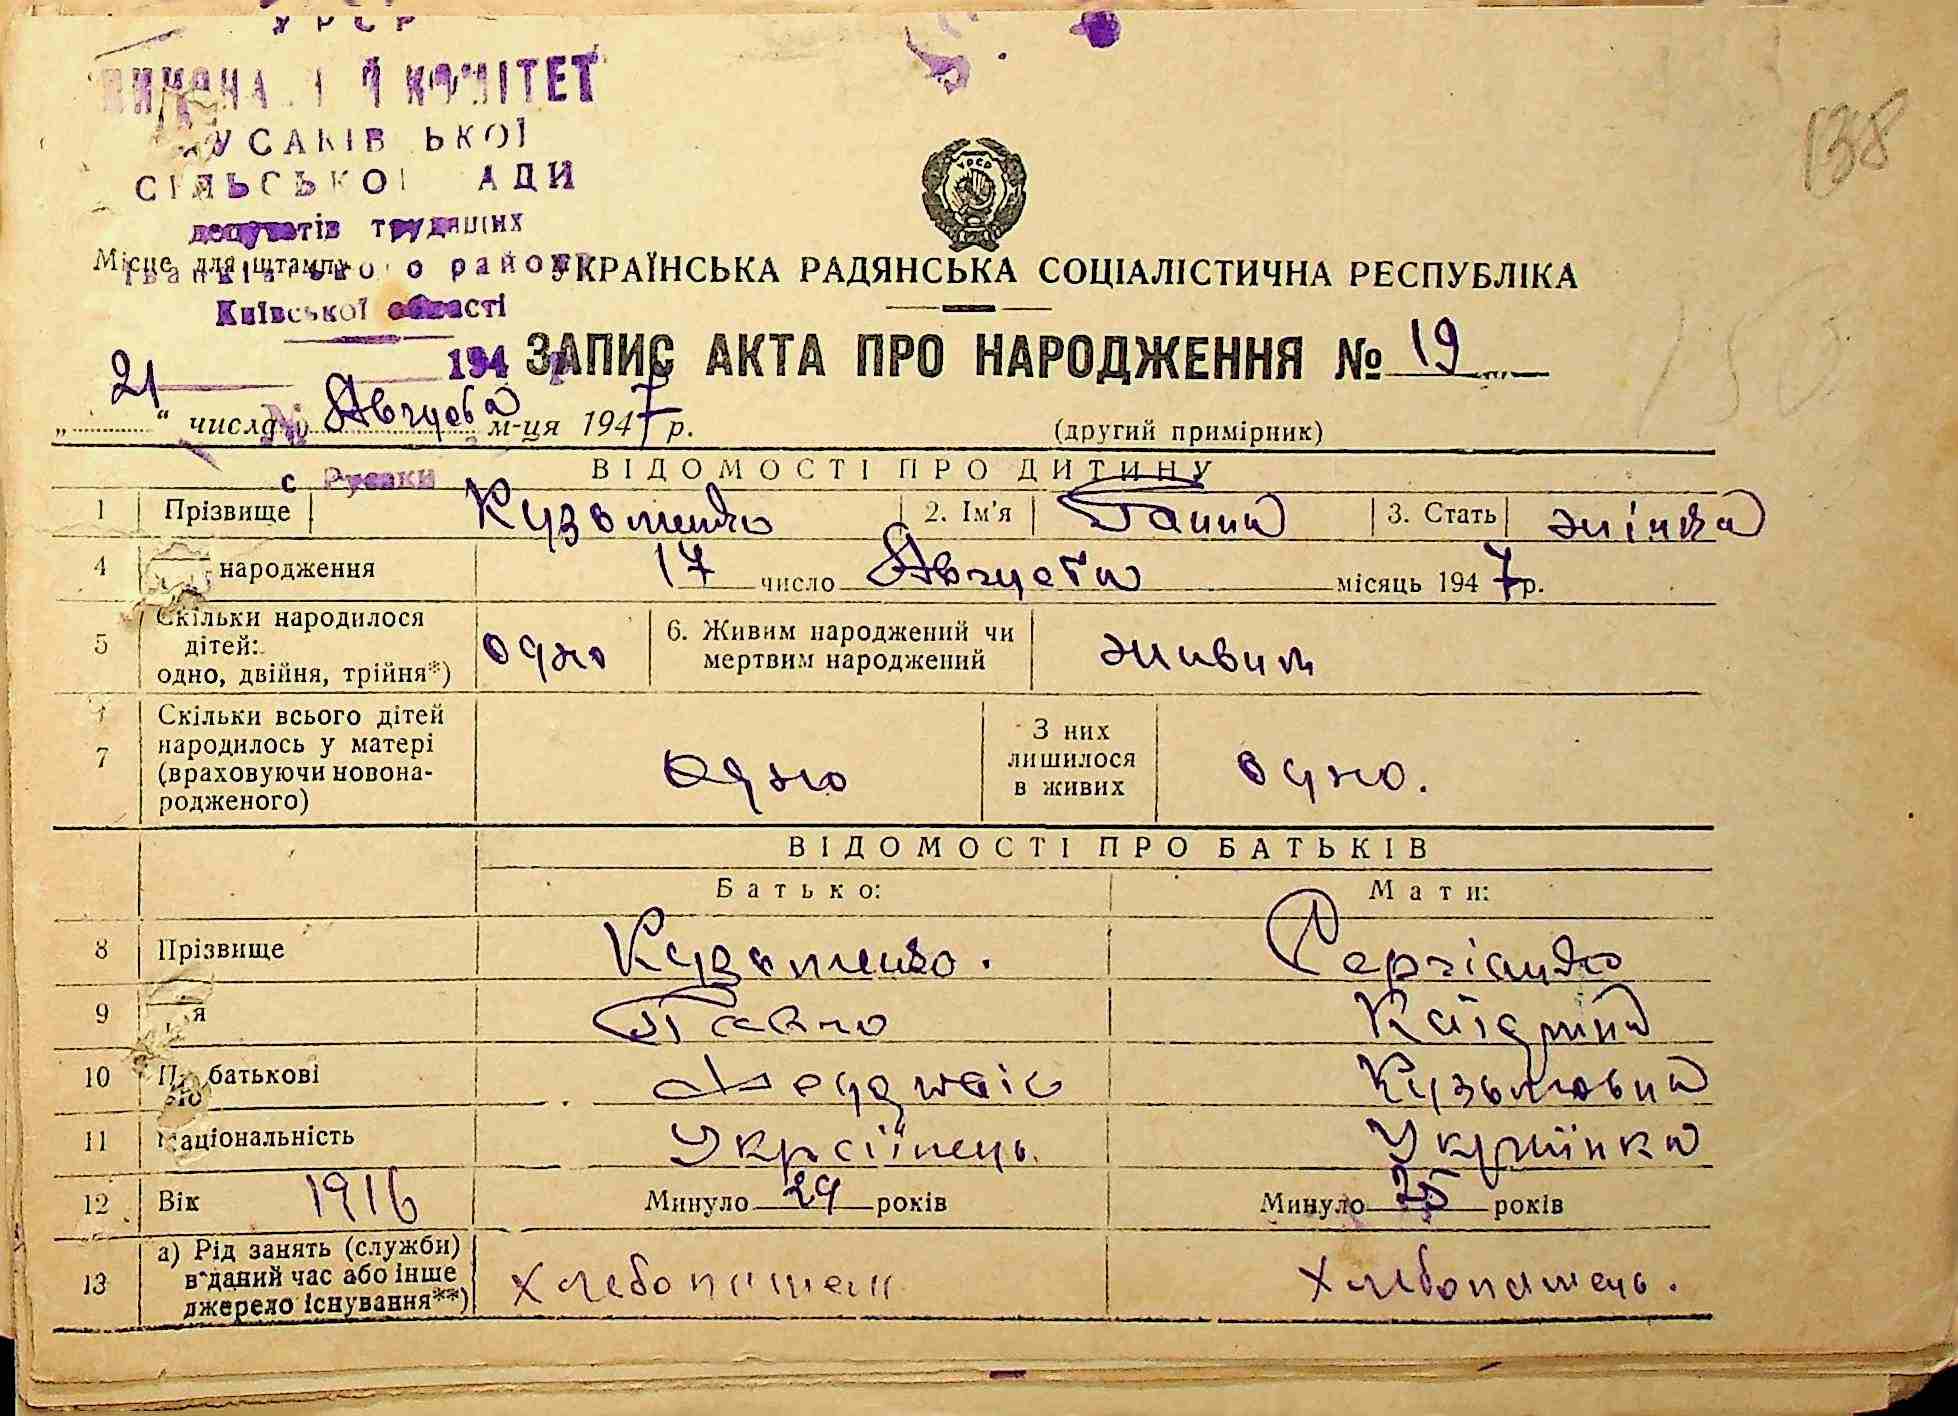 УРСР
КОМІТЕТ
СІЛЬСЬКОЇ РАДИ
депутатів трудящих
Місце для штампу
Іванківського району
Київської області
138
УРСР
УКРАЇНСЬКА РАДЯНСЬКА СОЦІАЛІСТИЧНА РЕСПУБЛІКА
194
ЗАПИС АКТА ПРО НАРОДЖЕННЯ № 19
„21“ числа Августа м-ця 1947 р.
(другий примірник)
с Русаки
ВІДОМОСТІ ПРО ДИТИНУ
1 Прізвище Кузьменко 2. Ім'я Ганна 3. Стать жінка
4 народження 17 число Августа місяць 1947 р.
5 Скільки народилося дітей: одно, двійня, трійня*) одно 6. Живим народжений чи мертвим народжений живим
7 Скільки всього дітей народилось у матері (враховуючи новонародженого) одно З них лишилося в живих одно.
ВІДОМОСТІ ПРО БАТЬКІВ
Батько: Мати:
8 Прізвище Кузьменко. Сергієнко
9 Павло
10 батькові Кузьмовна
11 Національність Українець. Українка
12 Вік 1916 Минуло 29 років Минуло 25 років
13 а) Рід занять (служби) в даний час або інше джерело існування**) Хлебопашец Хлебопашець.